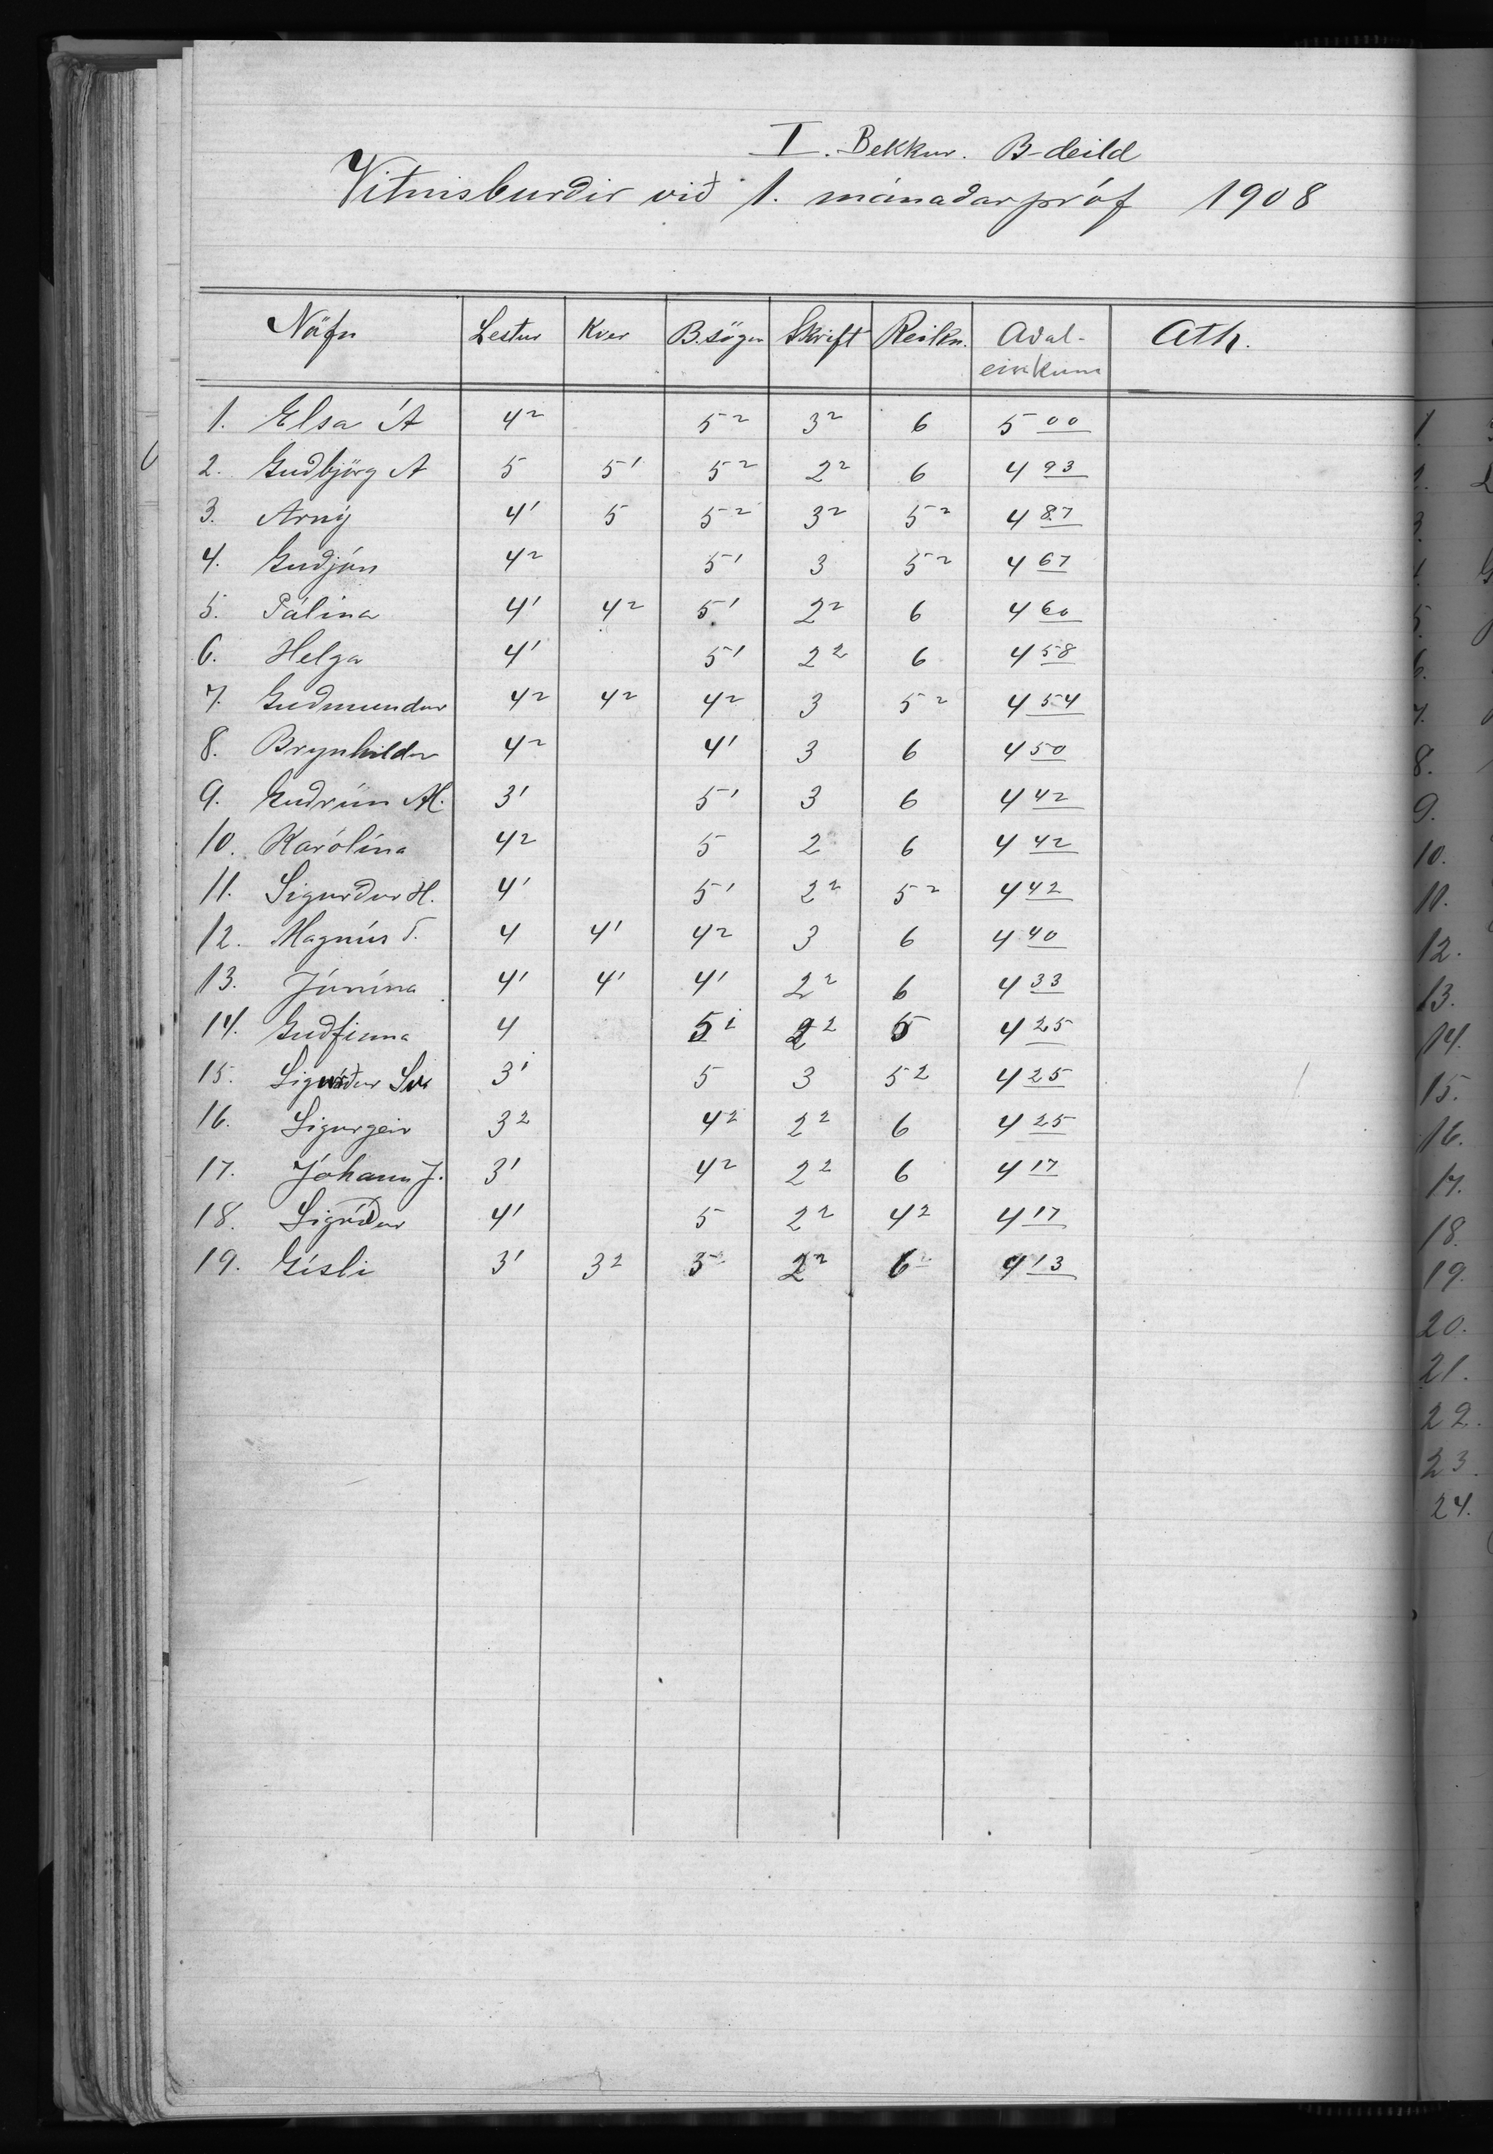 I. Bekkur. B-deild
Vitnisburðir við 1. mánaðarpróf 1908
Nöfn Lestur Kver B.sögur Skrift Reikn. Aðal-einkunn Ath.
1. Elsa Á 4² 5² 3² 6 5 00
2. Guðbjörg A 5 5¹ 5² 2² 6 4 93
3. Árný 4¹ 5 5² 3² 5² 4 87
4. Guðjón 4² 5¹ 3 5² 4 67
5. Pálína 4¹ 4² 5¹ 2² 6 4 60
6. Helga 4¹ 5¹ 2² 6 4 58
7. Guðmundur 4² 4² 4² 3 5² 4 54
8. Brynhildur 4² 4¹ 3 6 4 50
9. Guðrún M. 3¹ 5¹ 3 6 4 42
10. Karólína 4² 5 2 6 4 42
11. Sigurður H. 4¹ 5¹ 2² 5² 4 42
12. Magnús 4 4¹ 4² 3 6 4 40
13. Jónína 4¹ 4¹ 4¹ 2² 6 4 33
14. Guðfinna 4 5¹ 2² 5 4 25
15. Sigurður 3¹ 5 3 5² 4 25
16. Sigurgeir 3² 4² 2² 6 4 25
17. Jóhann J. 3¹ 4² 2² 6 4 17
18. Sigríður 4¹ 5 2² 4² 4 17
19. Gísli 3¹ 3² 5 2² 6 4 13
8.
9.
10.
11.
12.
13.
14.
15.
16.
17.
18.
19.
20.
21.
22.
23.
24.